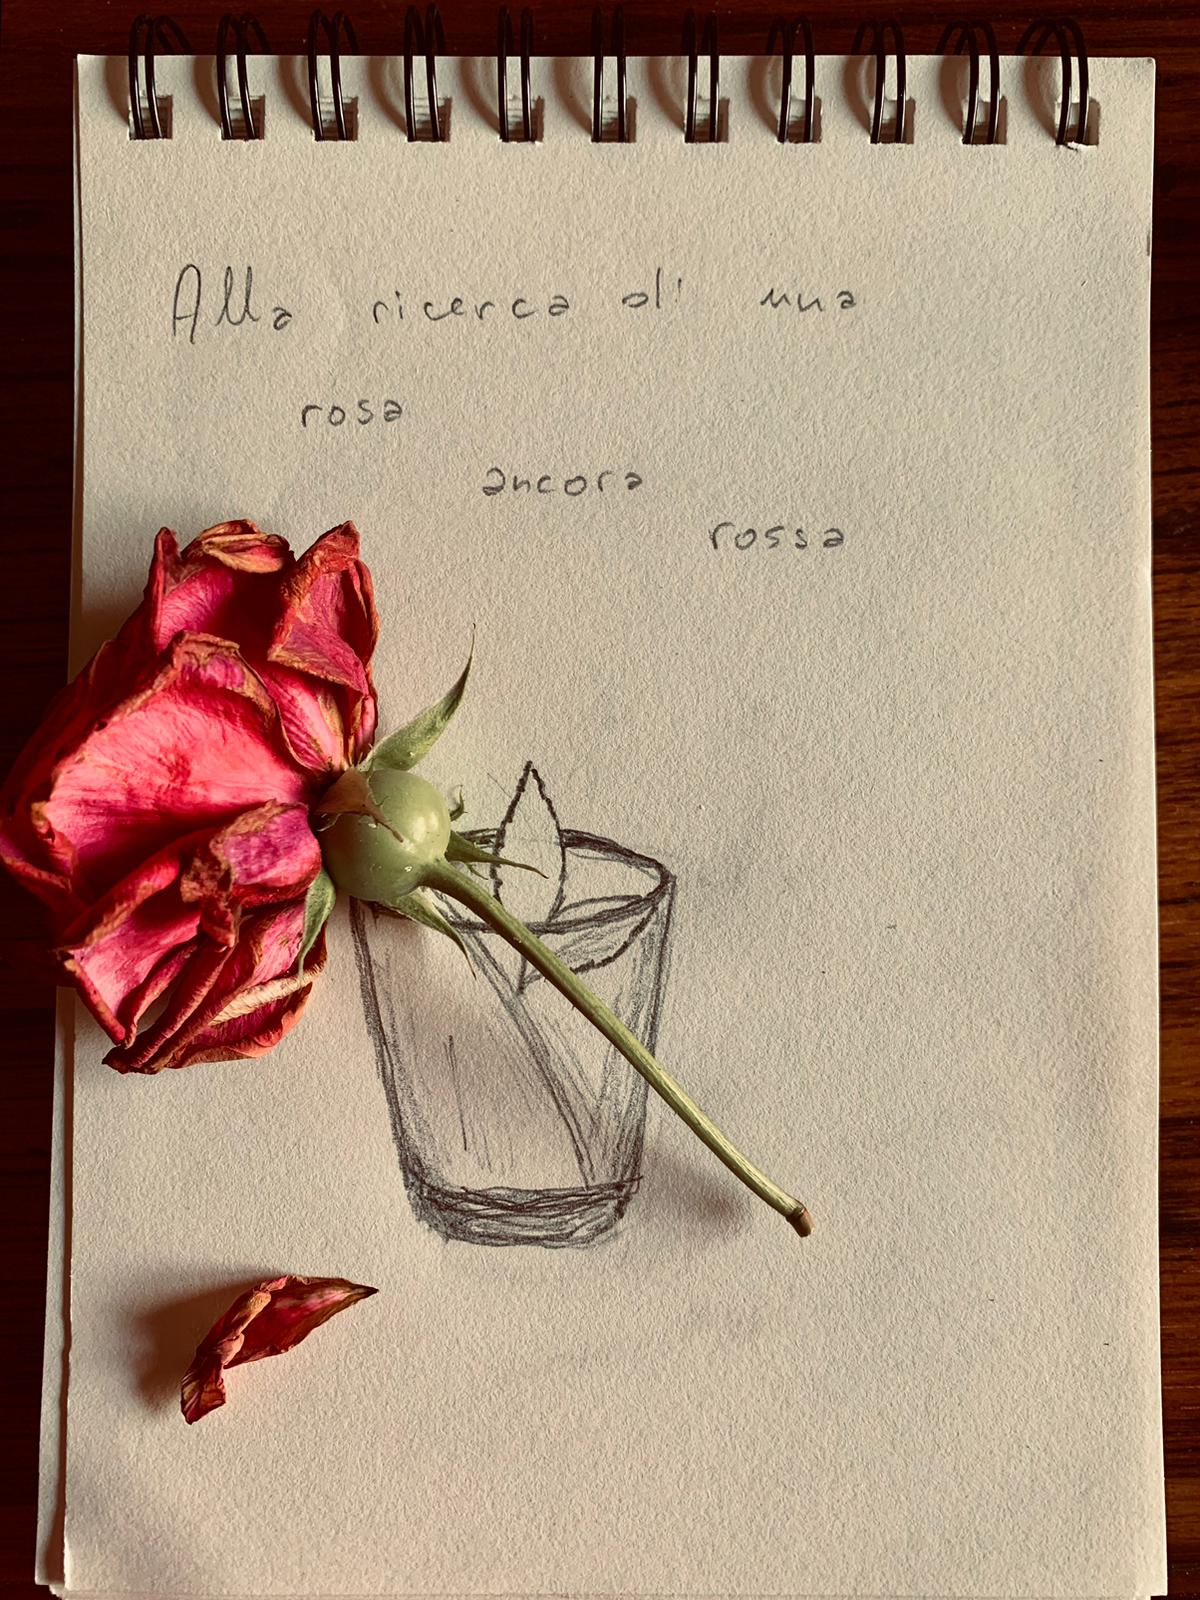 Alla ricerca di una
rosa
ancora
rossa